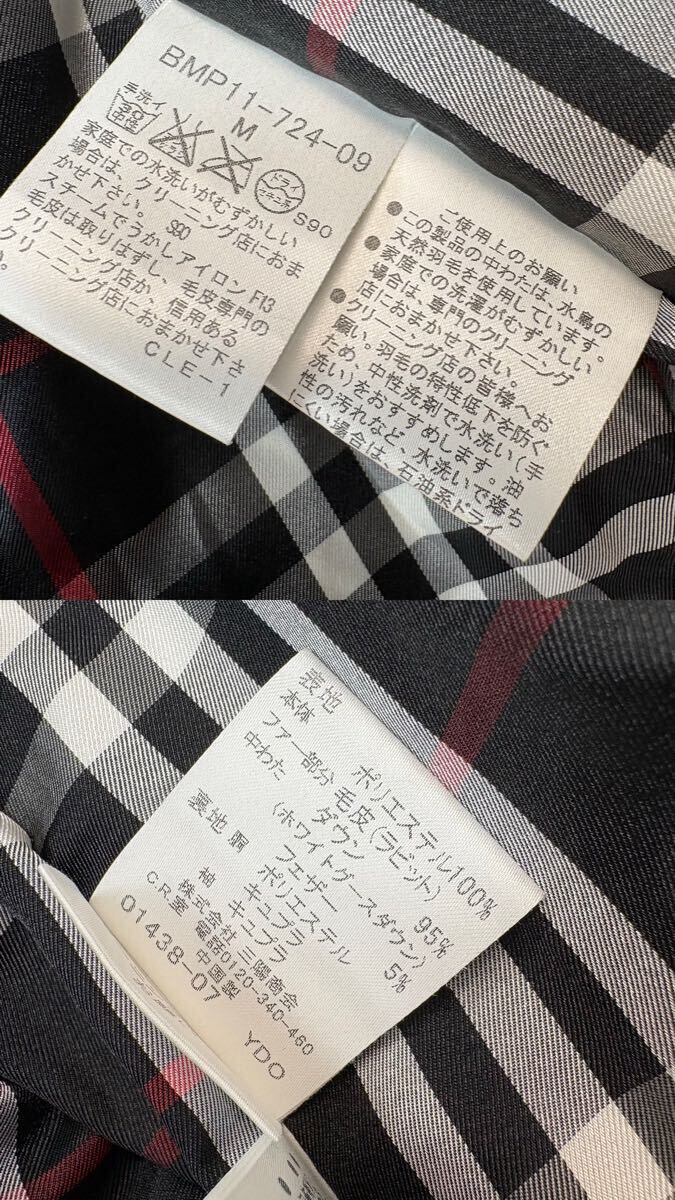 BMP11-724-09
M
手洗イ
30
中性
ドライ
セキユ系
S90
家庭での水洗いがむずかしい
場合は、クリーニング店におま
かせ下さい。 S90
スチームでうかしアイロン F13
毛皮は取りはずし、毛皮専門の
クリーニング店か、信用ある
クリーニング店におまかせ下さ
い。
CLE-1
ご使用上のお願い
●この製品の中わたは、水鳥の
天然羽毛を使用しています。
●家庭での洗濯がむずかしい
場合は、専門のクリーニング
店におまかせ下さい。
●クリーニング店の皆様へお
願い。羽毛の特性低下を防ぐ
ため、中性洗剤で水洗い(手
洗い)をおすすめします。油
性の汚れなど、水洗いで落ち
にくい場合は、石油系ドライ
表地
本体 ポリエステル100%
ファー部分 毛皮(ラビット)
中わた ダウン 95%
(ホワイトグースダウン)
フェザー 5%
裏地 胴 ポリエステル
キュプラ
袖 キュプラ
株式会社 三陽商会
C.R.室 電話0120-340-460
中国製
01438-07 YDO